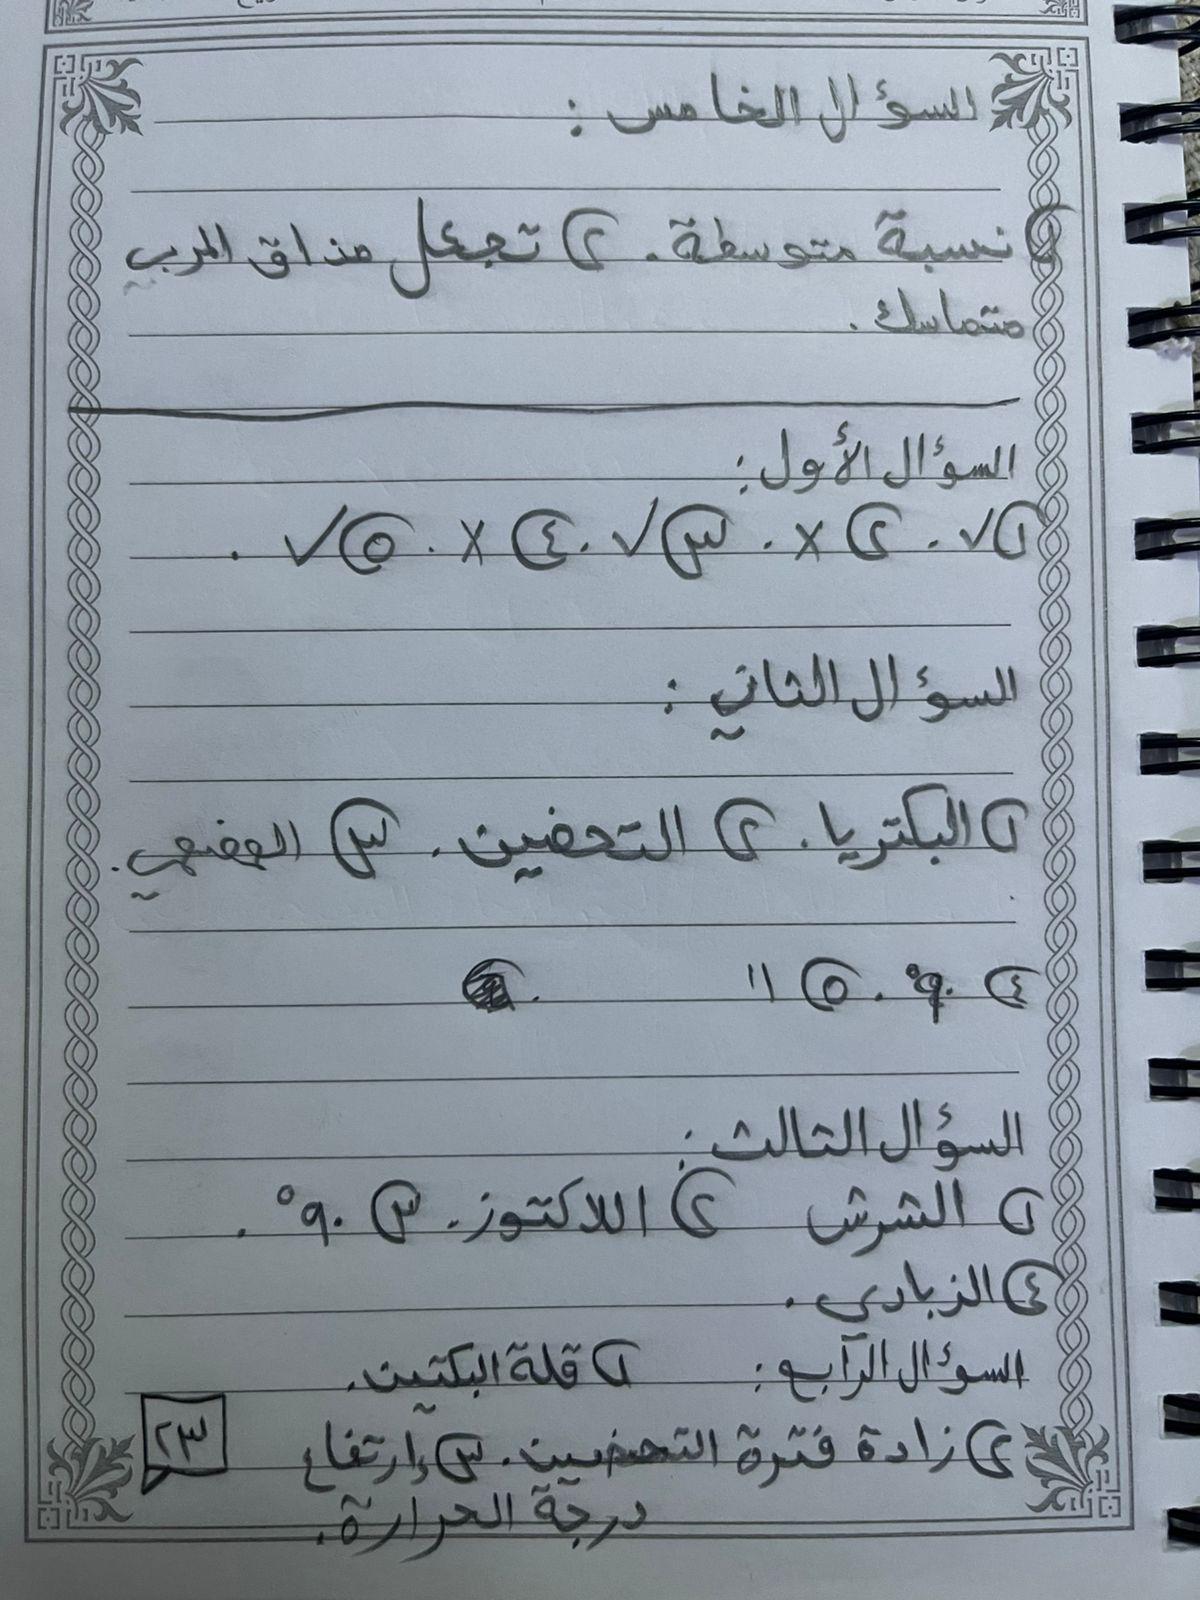 السؤال الخامس :
١) نسبة متوسطة. ٢) تجعل مذاق المربى
متماسك .
السؤال الأول :
١) ✓ . ٢) × . ٣) ✓ . ٤) × . ٥) ✓ .
السؤال الثاني :
١) البكتريا . ٢) التحضين . ٣) الهضمي .
٤) ٩٠° . ٥) ١١
السؤال الثالث :
١) الشرش ٢) اللاكتوز . ٣) ٩٠° .
٤) الزبادي .
السؤال الرابع : ١) قلة البكتين .
٢) زادة فترة التحضين . ٣) إرتفاع
درجة الحرارة .
٢٣